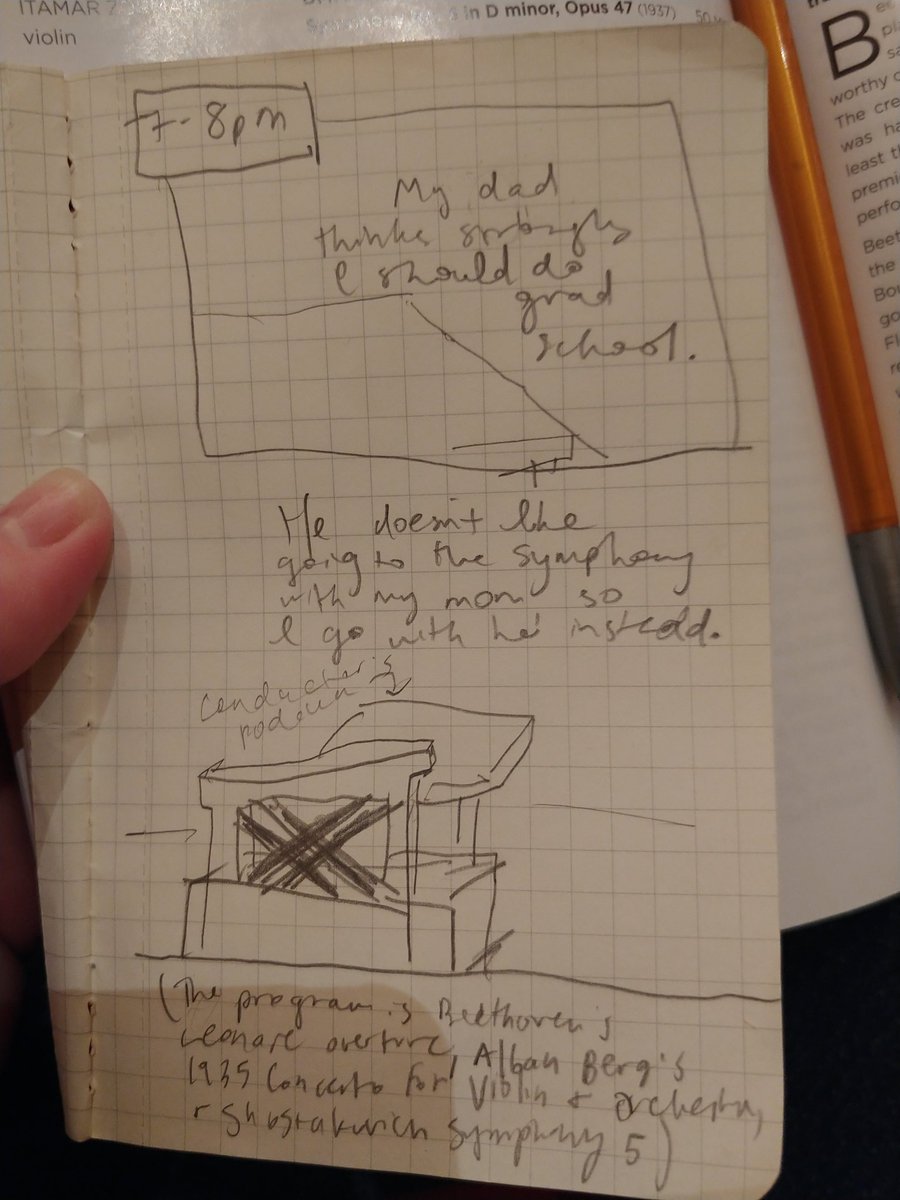 ITAMAR
violin
in D minor, Opus 47 (1937)
B
worthy
The cre
was ha
least th
premi
perfo
Beet
the
Bou
go
7-8pm
My dad
thinks
I should do
grad
school.
He doesn't like
going to the symphony
with my mom so
I go with her instead.
conductor's
podeum
(The program is Beethoven's
Leonore overture, Alban Berg's
1935 Concerto for Violin + Orchestra,
+ Shostakovich Symphony 5)